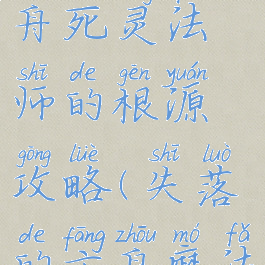 舟死灵法
shī de gēn yuán
师的根源
gōng lüè shī luò
攻略(失落
de fāng zhōu mó fǎ
的方舟魔法